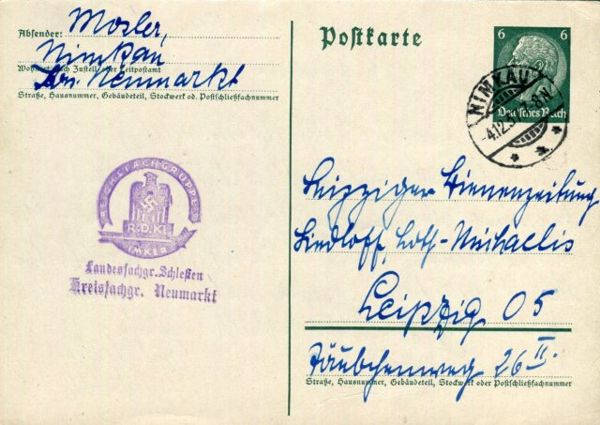 Absender: Mosler,
Nimkau
Wohnort, auch Zustell- oder Leitpostamt
Krs. Neumarkt
Straße, Hausnummer, Gebäudeteil, Stockwerk od. Postschließfachnummer
Postkarte
6 6
Deutsches Reich
NIMKAU
-4.12.3
-8N
REICHSFACHGRUPPE
R.D.Kl.
IMKER
Landesfachgr. Schlesien
Kreisfachgr. Neumarkt
Leipziger Bienenzeitung
Liedloff, Loth-Michaelis
Leipzig O5
Täubchenweg 26 II.
Straße, Hausnummer, Gebäudeteil, Stockwerk oder Postschließfachnummer